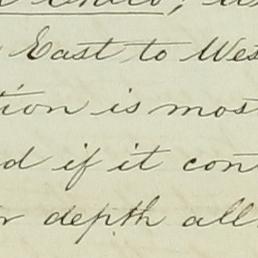 East to Wes
tion is mos
d if it con
r depth all